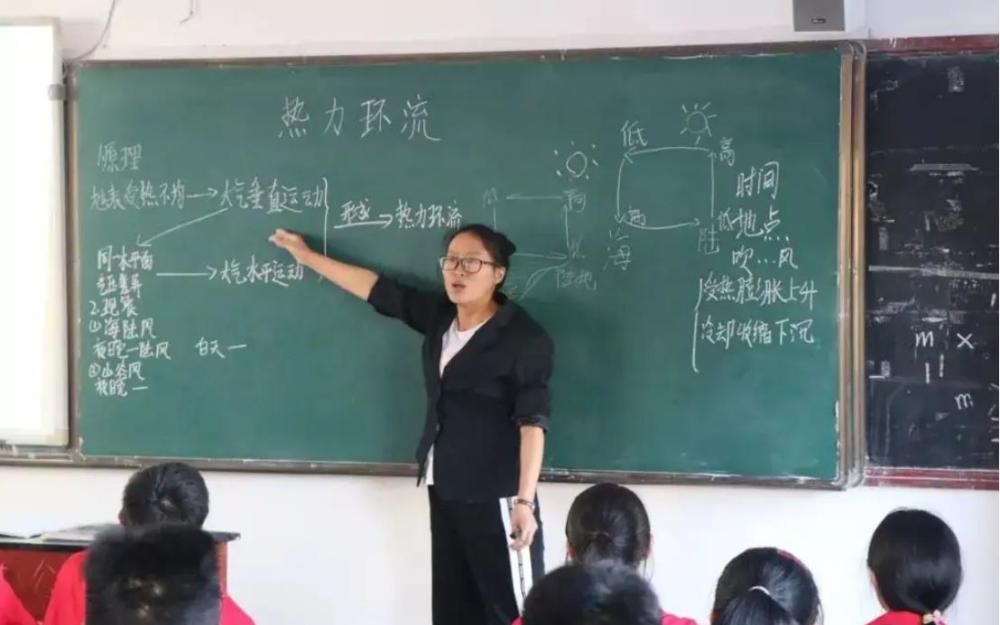 热力环流
原理
地表受热不均→大气垂直运动
形成→热力环流
同一水平面→大气水平运动
2.现象
①海陆风
夜晚—陆风 白天—
②山谷风
夜晚—
陆地
低 高
海 陆 低
时间
地点
吹…风
冷热膨胀上升
冷却收缩下沉
m x
m